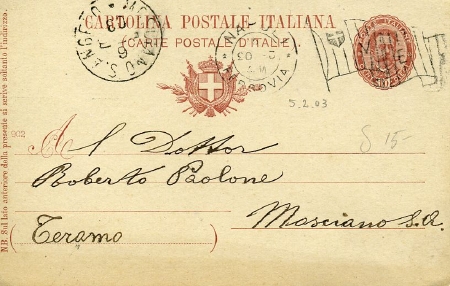 CARTOLINA POSTALE ITALIANA
(CARTE POSTALE D'ITALIE)
MOSCIANO S. ANGELO
NAPOLI
FERROVIA
5.2.03
8 15-
902
Al Dottor
Roberto Paolone
Mosciano S.A.
(Teramo)
N.B. Sul lato anteriore della presente si scrive soltanto l'indirizzo.